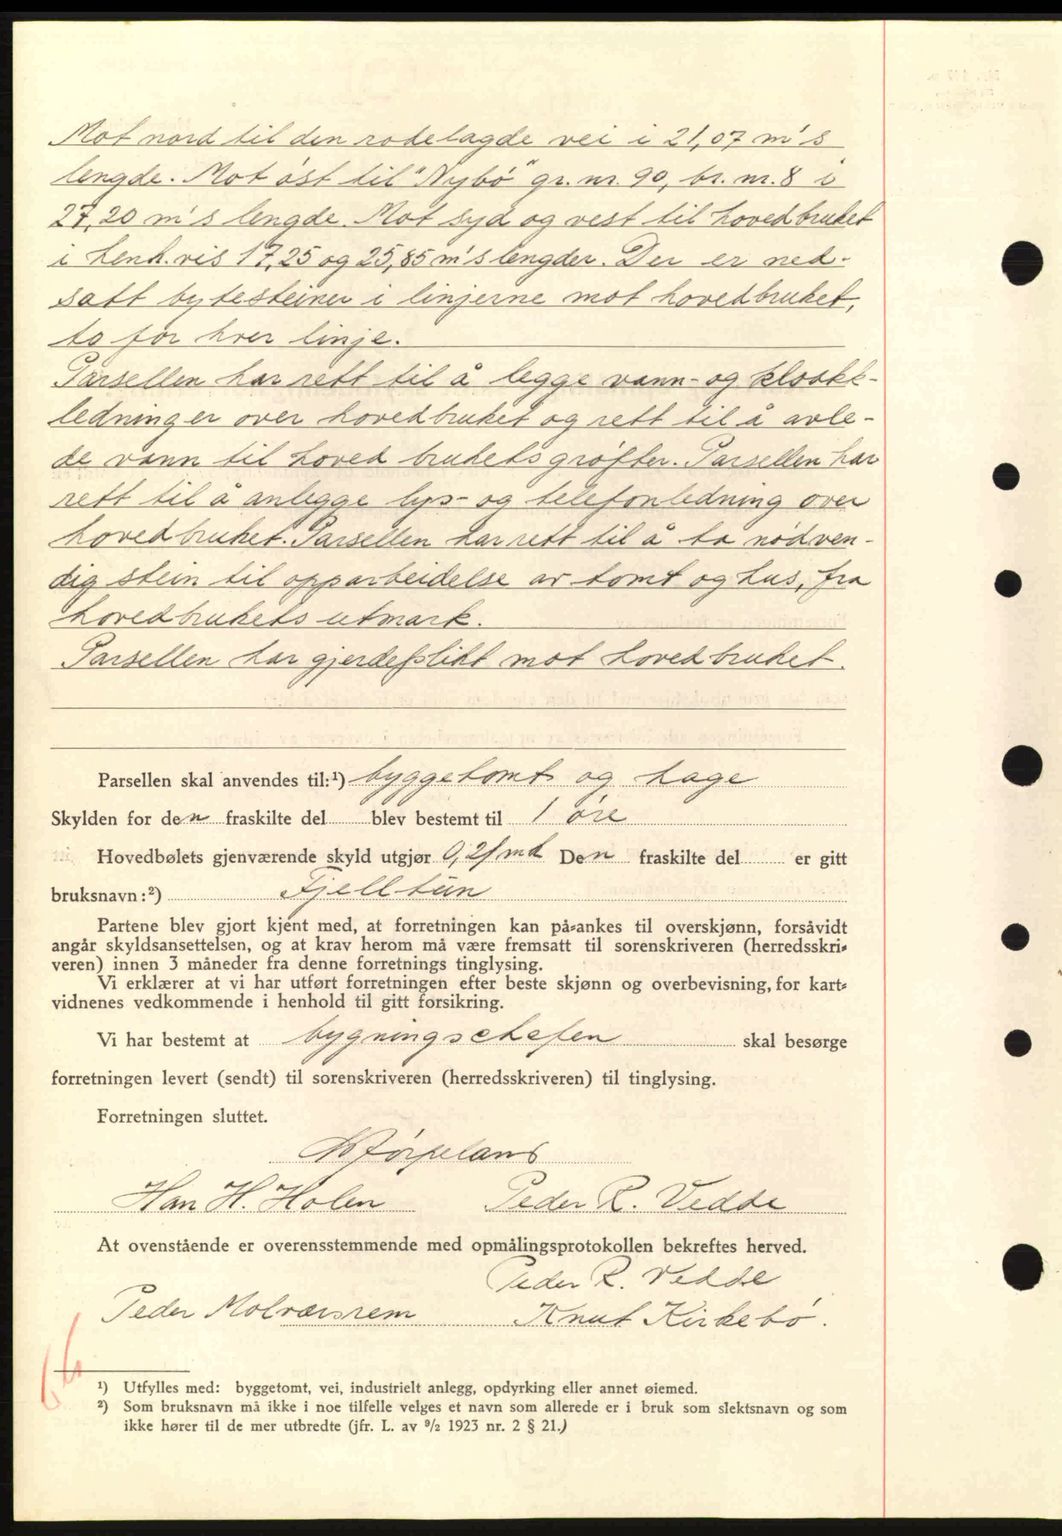 Mot nord til den rodelagde vei i 21,07 m's
lengde. Mot øst til "Nybø" gr. nr. 90, br. nr. 8 i
27,20 m's lengde. Mot syd og vest til hovedbruket
i henh.vis 17,25 og 25,85 m's lengder. Der er ned-
satt bytesteiner i linjerne mot hovedbruket,
to for hver linje.
Parsellen har rett til å legge vann- og kloakk-
ledninger over hovedbruket og rett til å avle-
de vann til hovedbrukets grøfter. Parsellen har
rett til å anlegge lys- og telefonledning over
hovedbruket. Parsellen har rett til å ta nødven-
dig stein til opparbeidelse av tomt og hus, fra
hovedbrukets utmark.
Parsellen har gjerdeplikt mot hovedbruket.
Parsellen skal anvendes til:¹) byggetomt og hage
Skylden for den fraskilte del blev bestemt til 1 øre
Hovedbølets gjenværende skyld utgjør 0,21 mrk Den fraskilte del er gitt
bruksnavn:²) Fjelltun
Partene blev gjort kjent med, at forretningen kan på-ankes til overskjønn, forsåvidt
angår skyldsansettelsen, og at krav herom må være fremsatt til sorenskriveren (herredsskri-
veren) innen 3 måneder fra denne forretnings tinglysing.
Vi erklærer at vi har utført forretningen efter beste skjønn og overbevisning, for kart-
vidnenes vedkommende i henhold til gitt forsikring.
Vi har bestemt at bygningschefen skal besørge
forretningen levert (sendt) til sorenskriveren (herredsskriveren) til tinglysing.
Forretningen sluttet.
Han H. Holen Peder R. Vedde
At ovenstående er overensstemmende med opmålingsprotokollen bekreftes herved.
Peder R. Vedde
Peder Molværsrem Knut Kirkebø.
¹) Utfylles med: byggetomt, vei, industrielt anlegg, opdyrking eller annet øiemed.
²) Som bruksnavn må ikke i noe tilfelle velges et navn som allerede er i bruk som slektsnavn og som
ikke hører til de mer utbredte (jfr. L. av ⁹/₂ 1923 nr. 2 § 21.)